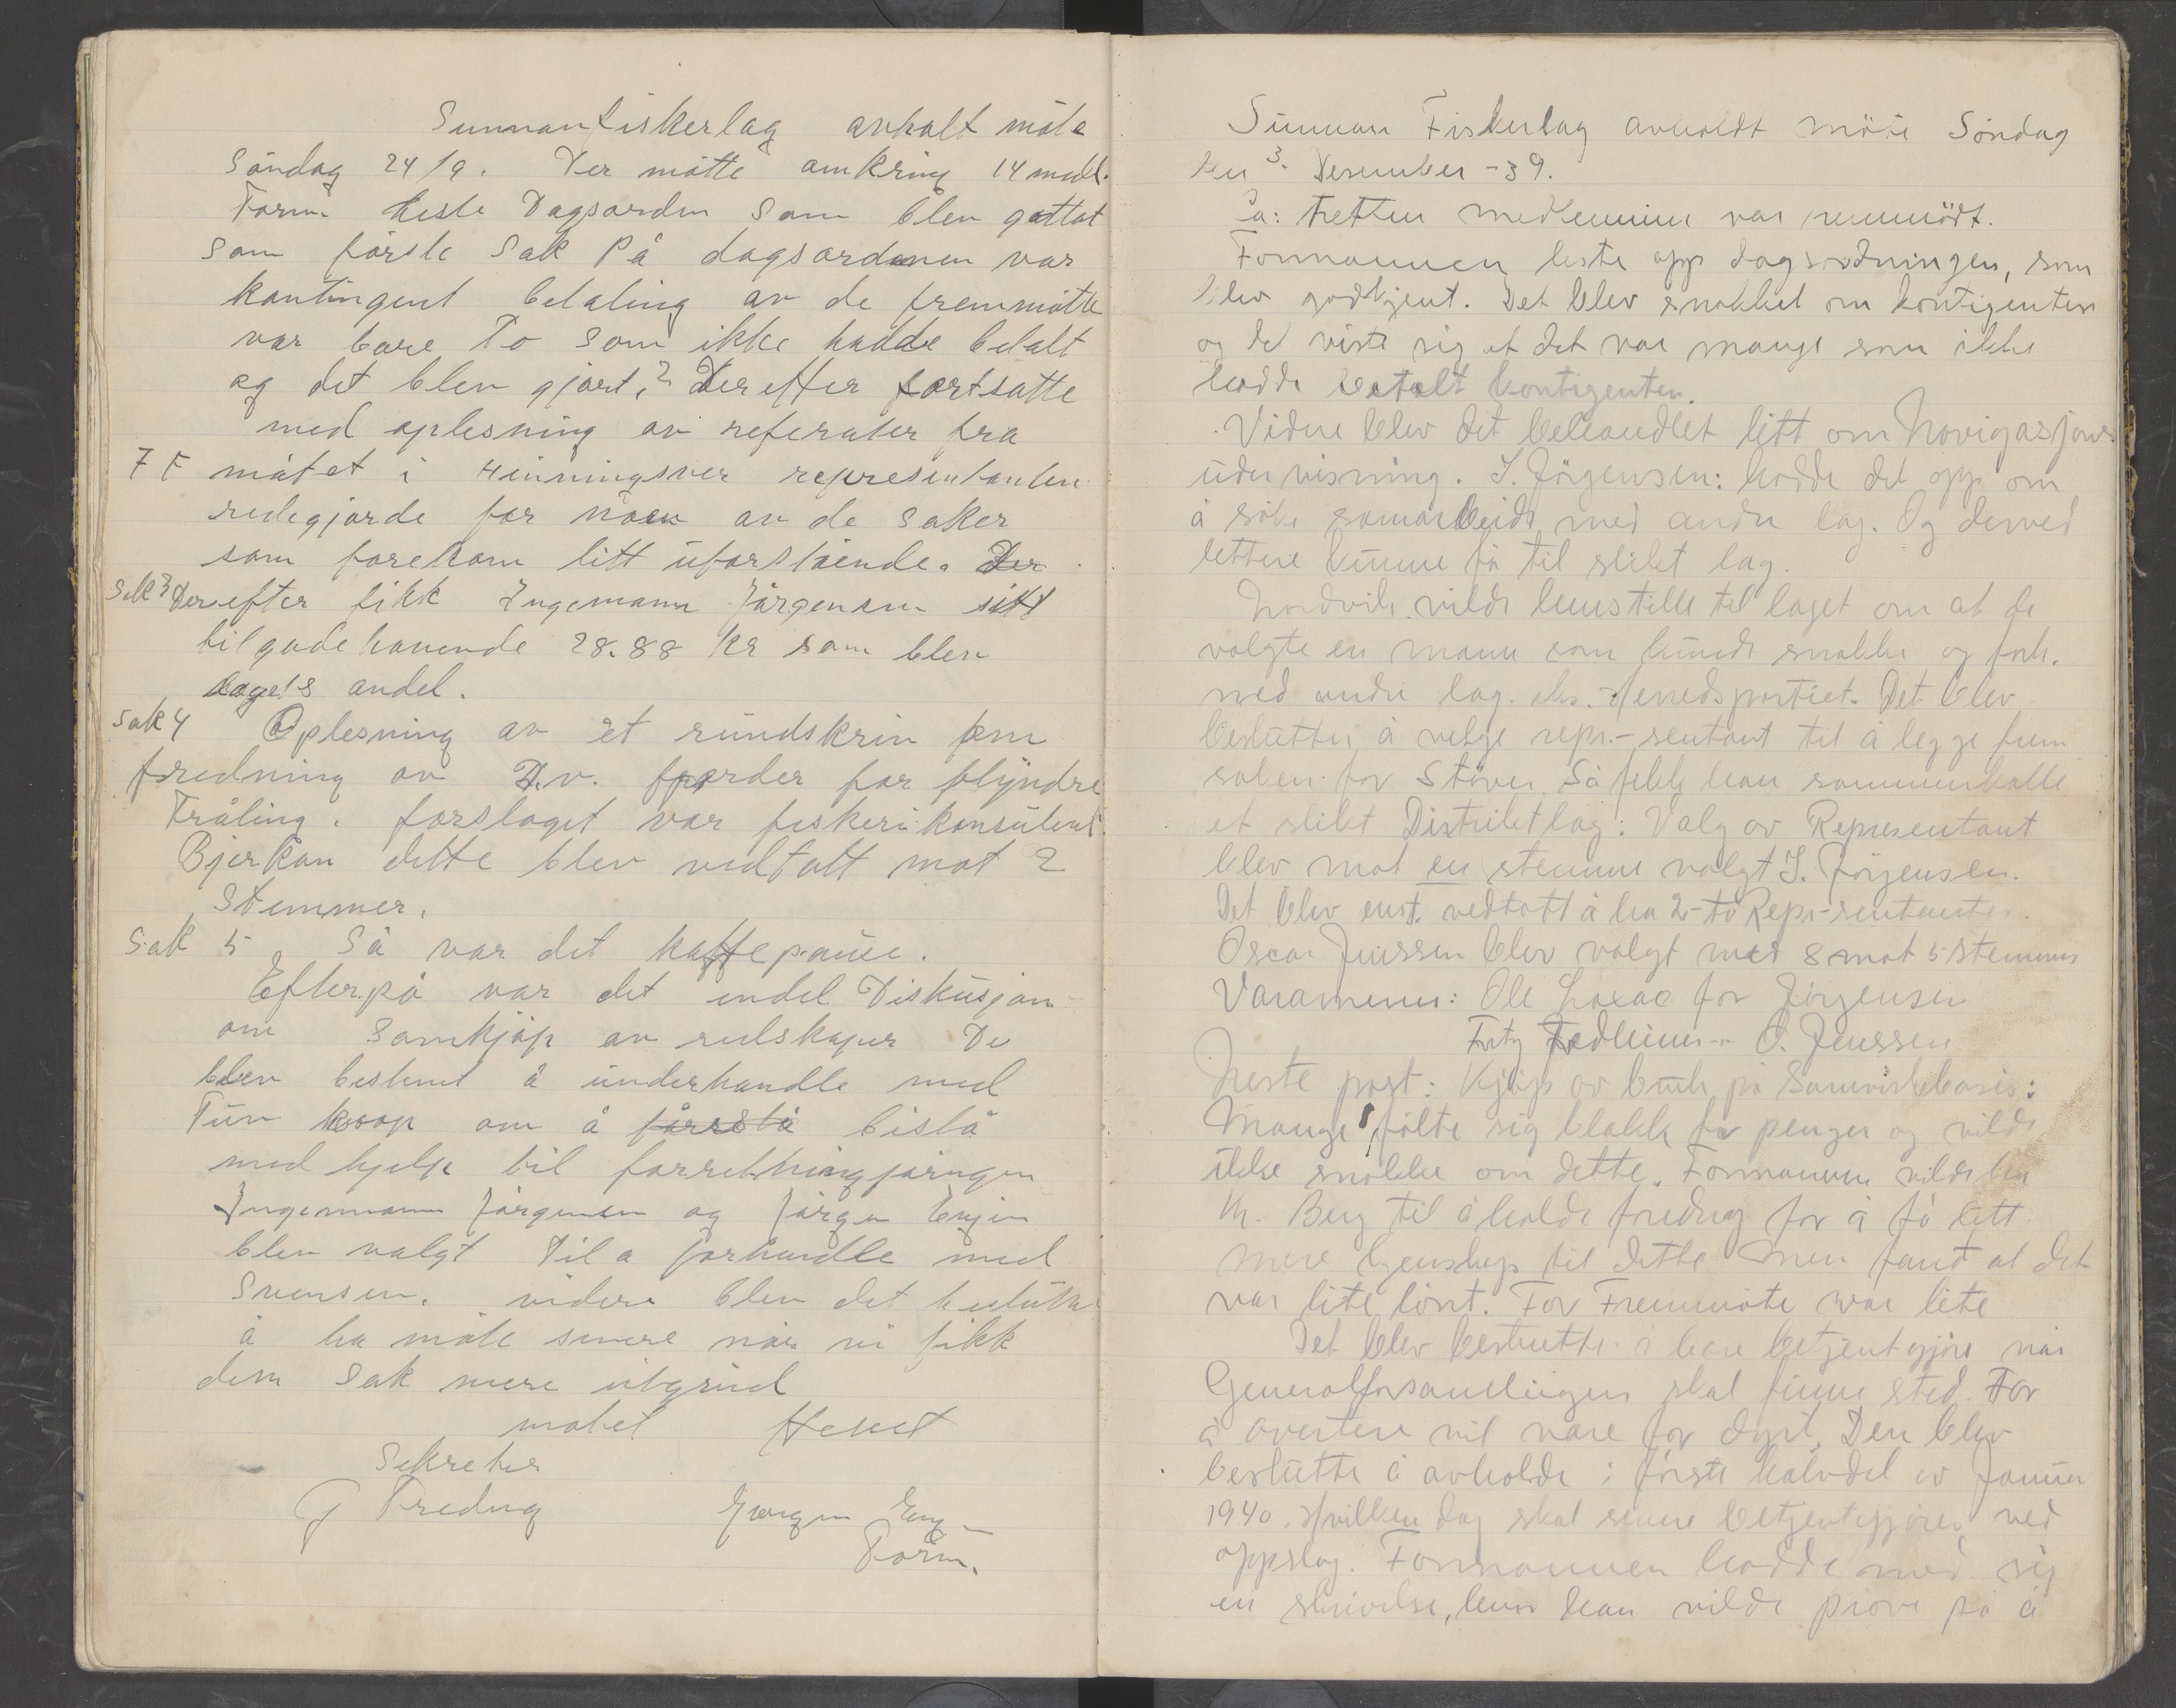 Sunnan fiskerlag avholt møte
Søndag 24/9. Der møtte omkring 14 medl.
Form. leste Dagsorden som blev gottat
som første sak på dagsordenen var
kontingent betaling av de fremmøtte
var bare To som ikke hadde betalt
og det blev gjort, 2 Derefter fortsatte
med oplesning av referater fra
F F møtet i Henningsvær representanten
redegjorde for noen av de saker
som forekom litt uforstående. Der
Sak 3 Derefter fikk Ingemann Jørgensen sitt
tilgodehavende 28.88 kr som blev
lagets andel.
Sak 4 Oplesning av et rundskriv om
fredning av D.v. fjorder for flyndre
Tråling. forslaget var fiskerikonsulent
Bjerkan dette blev vedtatt mot 2
Stemmer.
Sak 5 Så var det kaffepause.
Efterpå var det endel Diskusjon
om samkjøp av redskaper De
blev bestemt å underhandle med
Tuv koop om å forstå bistå
med hjelp til
Ingemann Jørgensen og Jørgen
blev valgt Til a forhandle med
Svensen. videre blev det beslutte
å ha møte senere når vi fikk
den sak mere utgried
møtet Hevet
Sekretær
G Fredwg Jørgen
Form.
Sunnan Fiskerlag avholdt möte Söndag
den 3. Desember -39.
Ca: tretten medlemmer var fremmödt.
Formannen leste opp dagsordningen, som
blev godkjent. Det blev snakket om kontigenten
og de viste sig at det var mange som ikke
hadde betalt kontigenten.
Videre blev det behandlet litt om Navigasjons
undervisning. I. Jörgensen: hadde det opp om
å söke samarbeide med andre lag. Og derved
lettere kunne få til slikt lag.
Nordvik vilde henstille til laget om at de
valgte en mann som kunde snakke og forh.
med andre lag. eks. Herredspartiet. Det blev
besluttet å velge repr.-sentant til å legge frem
saken for Stöver. Så fikk han sammenkalle
et slikt Distriktlag: Valg av Representant
blev mot en stemme valgt I. Jörgensen.
Det blev enst. vedtatt å ha 2-to Repr-sentanter.
Oscar Jenssen blev valgt med 8 mot 5 stemmer
Varamenn: Ole for Jörgensen
O. Jenssen
Neste post: Kjöp av bruk på Samvirkebasis:
Mange fölte sig blakk for penger og vilde
ikke snakke om dette. Formannen vilde ha
Berg til å holde foredrag for å få litt
mere kjenskap til dette men fant at det
var lite lönt. For Fremmöte var lite
Det blev beslutte å bare betjentgjöre når
Generalforsamlingen skal finne sted. For
å avertere vil være for dyrt. Den blev
beslutte å avholde i förste halvdel av Januar
1940. Hvilken dag skal senere betjentgjöres ved
oppslag. Formannen hadde med sig
en skrivelse, hvor han vilde pröve på å